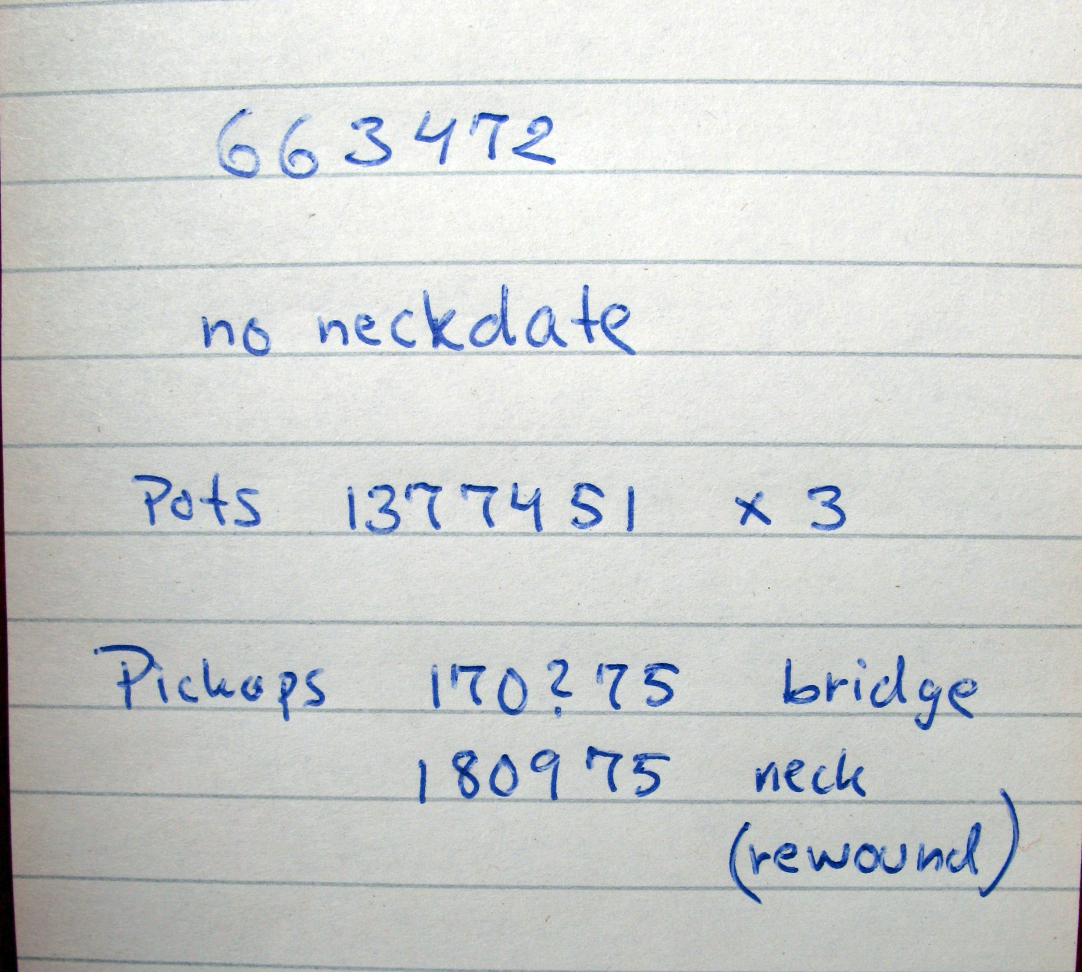 663472
no neckdate
Pots 1377451 x 3
Pickups 170?75 bridge
180975 neck
(rewound)